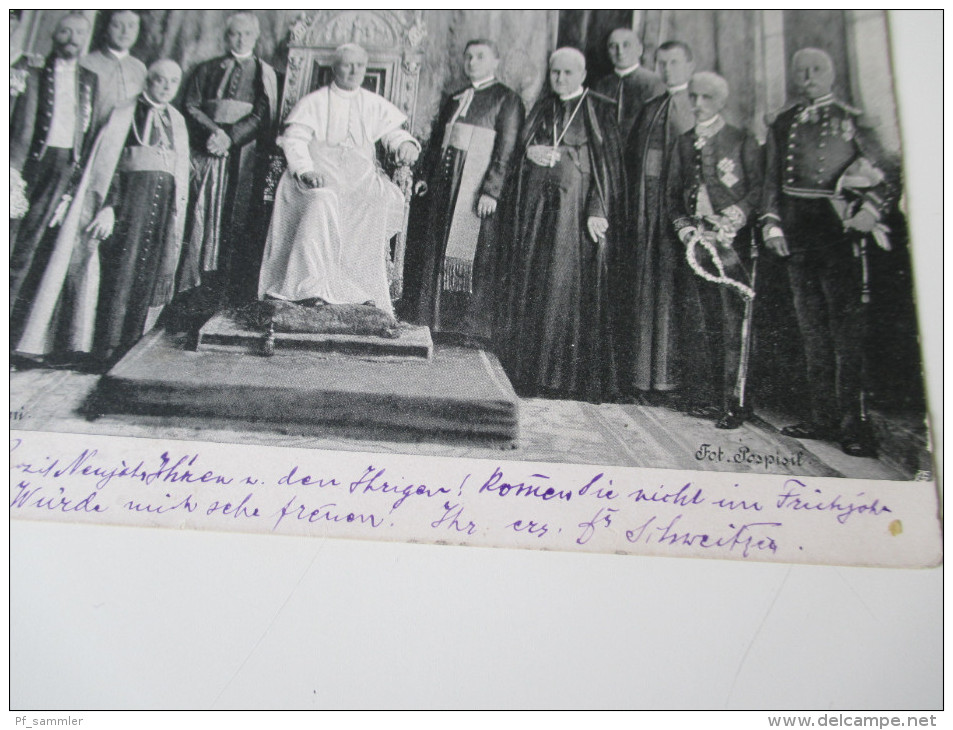 ni.
Fot. Pospisil.
zit Neujahr Ihnen u. den Ihrigen! Kom̄en Sie nicht im Frühjahr
Würde mich sehr freuen! Ihr erg. Dr Schweitzer.
Pf_sammler
www.delcampe.net